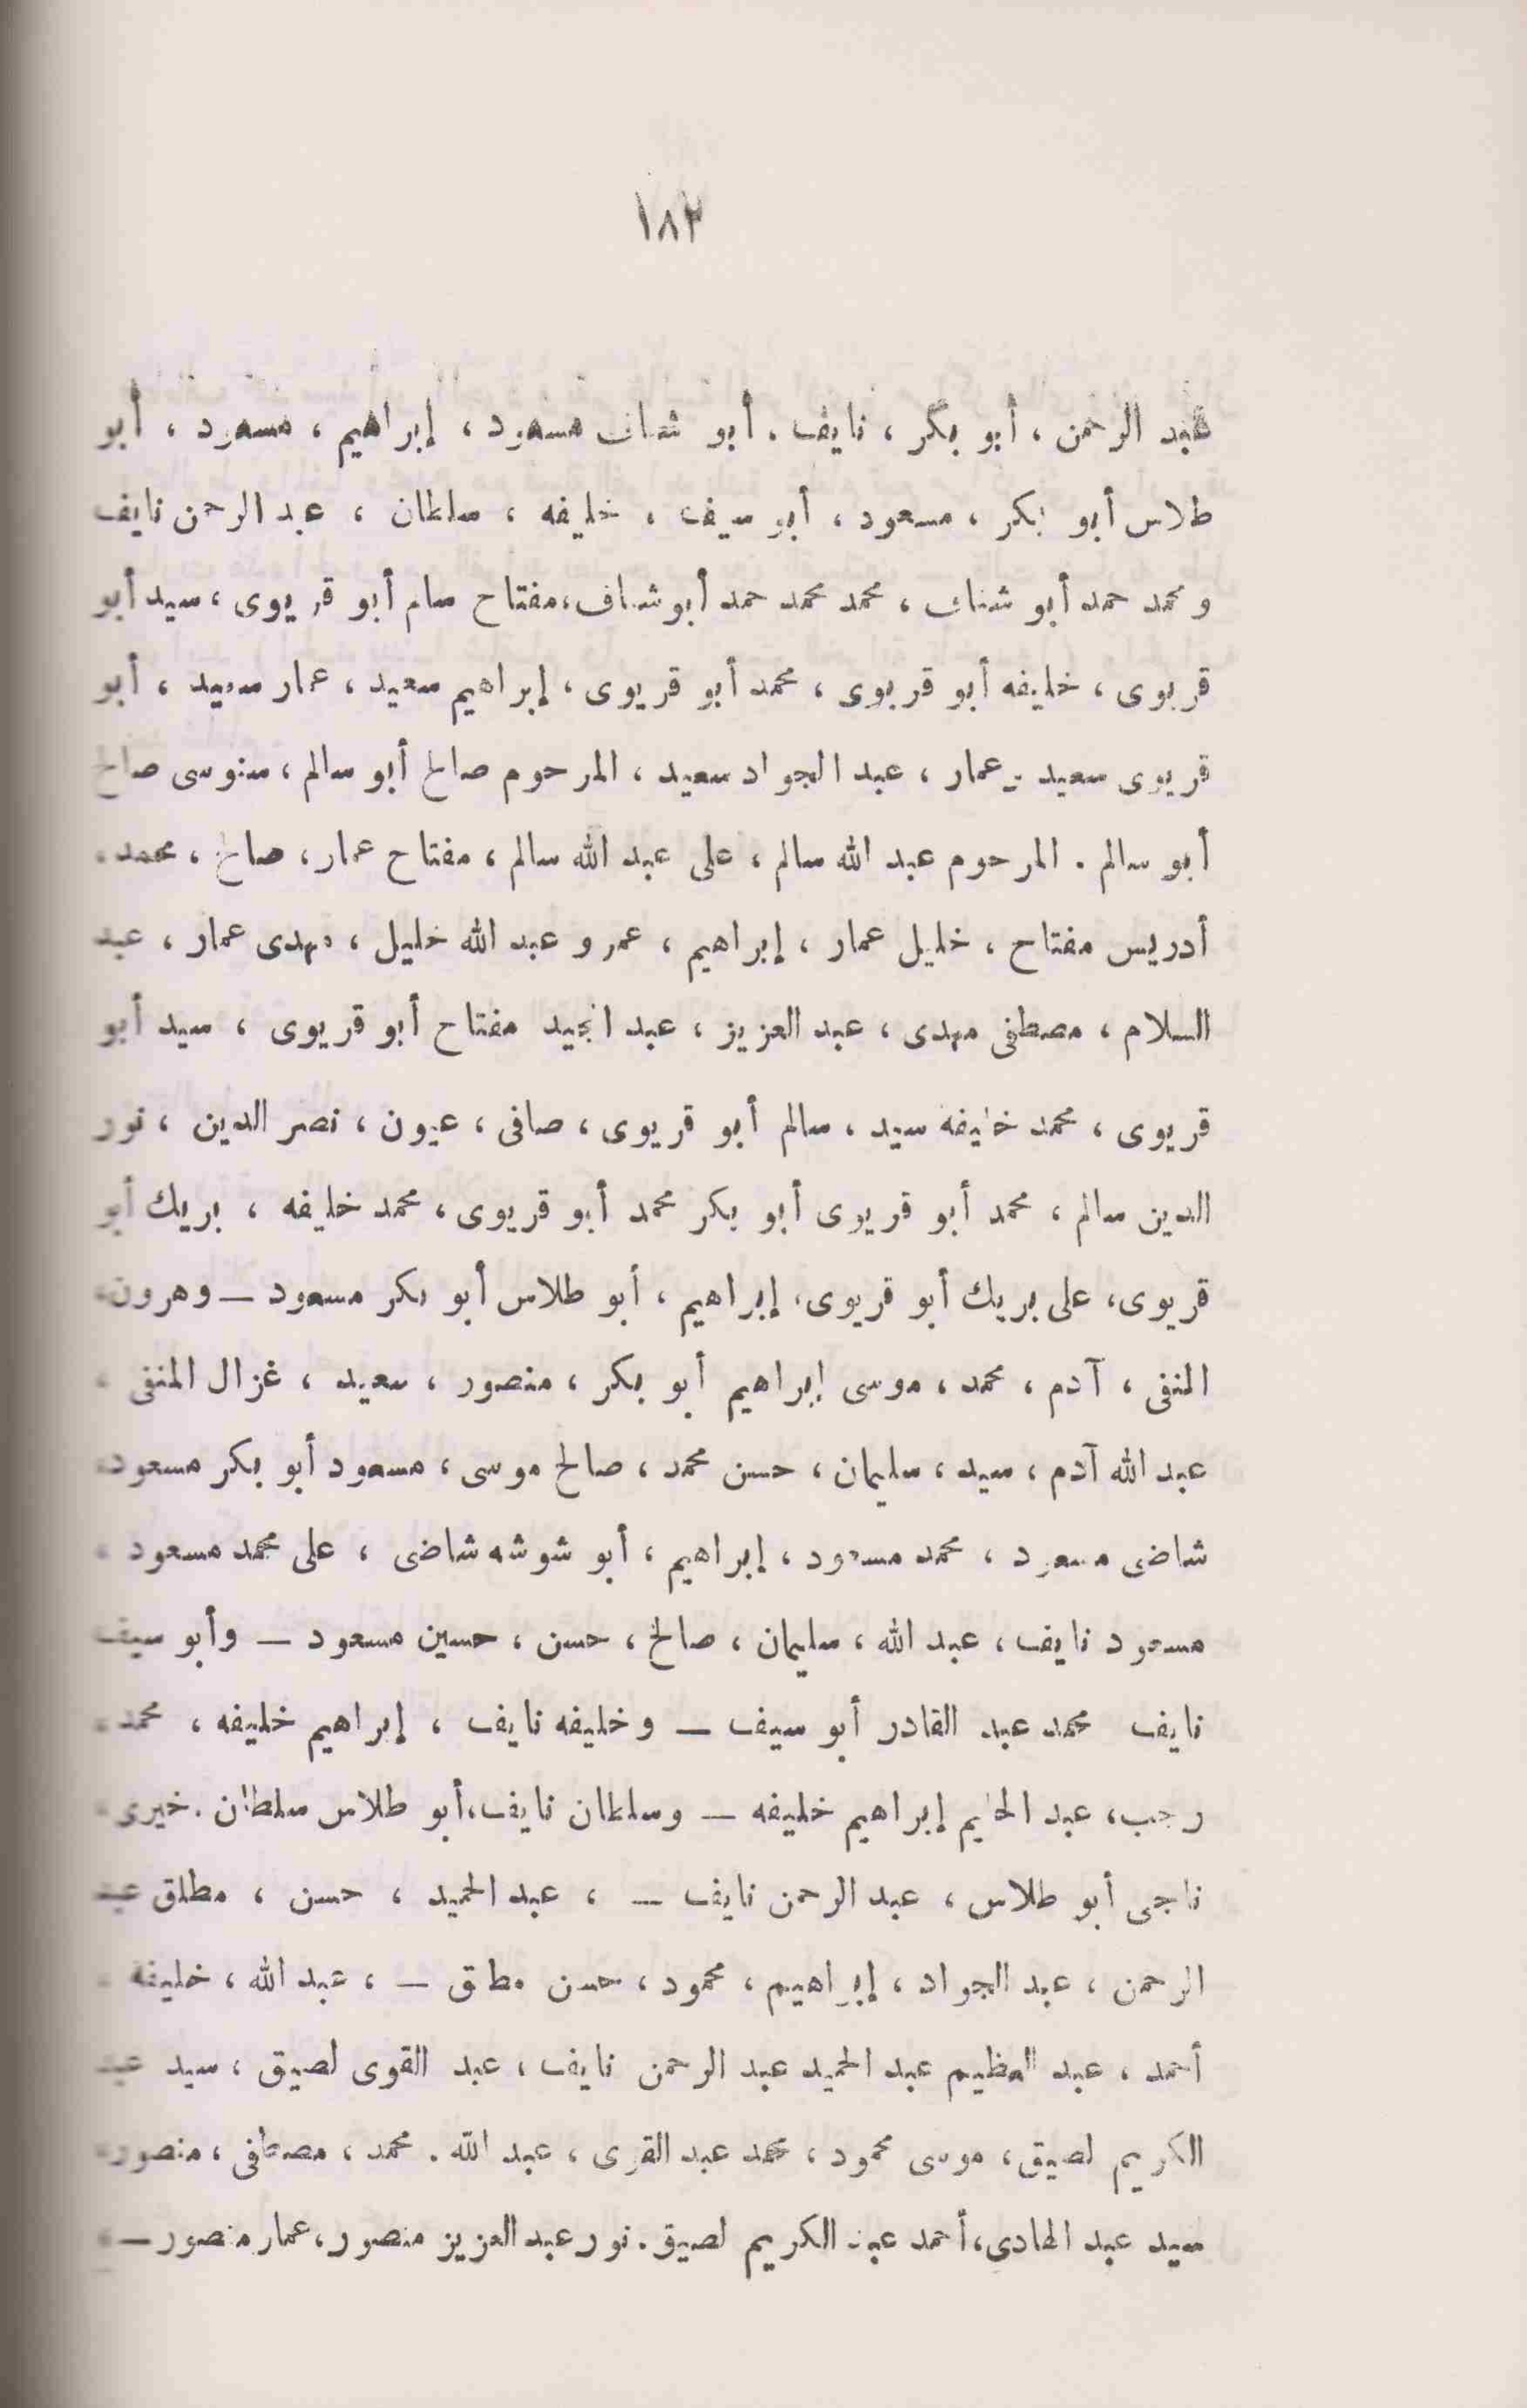 ١٨٢
عبد الرحمن ، أبو بكر ، نايف . أبو شناف مسعود ، إبراهيم ، مسعود ، أبو
طلاس أبو بكر ، مسعود ، أبو سيف ، خليفه ، سلطان ، عبد الرحمن نايف
و محمد حمد أبو شناف ، محمد محمد حمد أبو شناف ، مفتاح سالم أبو قريوى ، سيد أبو
قريوى ، خليفه أبو قريوى ، محمد أبو قريوى ، إبراهيم سعيد ، عمار سعيد ، أبو
قريوى سعيد - عمار ، عبد الجواد سعيد ، المرحوم صالح أبو سالم ، سنوسى صالح
أبو سالم . المرحوم عبد الله سالم ، على عبد الله سالم ، مفتاح عمار ، صالح ، محمد ،
أدريس مفتاح ، خليل عمار ، إبراهيم ، عمرو عبد الله خليل ، مهدى عمار ، عبد
السلام ، مصطفى مهدى ، عبد العزيز ، عبد المجيد مفتاح أبو قريوى ، سيد أبو
قريوى ، محمد خليفه سيد ، سالم أبو قريوى ، صافى ، عيون ، نصر الدين ، نور
الدين سالم ، محمد أبو قريوى أبو بكر محمد أبو قريوى ، محمد خليفه ، بريك أبو
قريوى ، على بريك أبو قريوى ، إبراهيم ، أبو طلاس أبو بكر مسعود – وهرون ،
المنفى ، آدم ، محمد ، موسى إبراهيم أبو بكر ، منصور ، سعيد ، غزال المنفى ،
عبد الله آدم ، سيد ، سليمان ، حسن محمد ، صالح موسى ، مسعود أبو بكر مسعود ،
شاضى مسعود ، محمد مسعود ، إبراهيم ، أبو شوشه شاضى ، على محمد مسعود ،
مسعود نايف ، عبد الله ، سليمان ، صالح ، حسن ، حسين مسعود – وأبو سيف
نايف محمد عبد القادر أبو سيف – وخليفه نايف ، إبراهيم خليفه ، محمد ،
رجب ، عبد الحليم إبراهيم خليفه – وسلطان نايف ، أبو طلاس سلطان . خيرى ،
ناجى أبو طلاس ، عبد الرحمن نايف – ، عبد الحميد ، حسن ، مطلق عبد
الرحمن ، عبد الجواد ، إبراهيم ، محمود ، حسن مطلق – ، عبد الله ، خليفة ،
أحمد ، عبد العظيم عبد الحميد عبد الرحمن نايف ، عبد القوى لصيق ، سيد عبد
الكريم لصيق ، موسى محمود ، محمد عبد القوى ، عبد الله . محمد ، مصطفى ، منصور ،
سيد عبد الهادى ، أحمد عبد الكريم لصيق . نور عبد العزيز منصور ، عمار منصور – ،